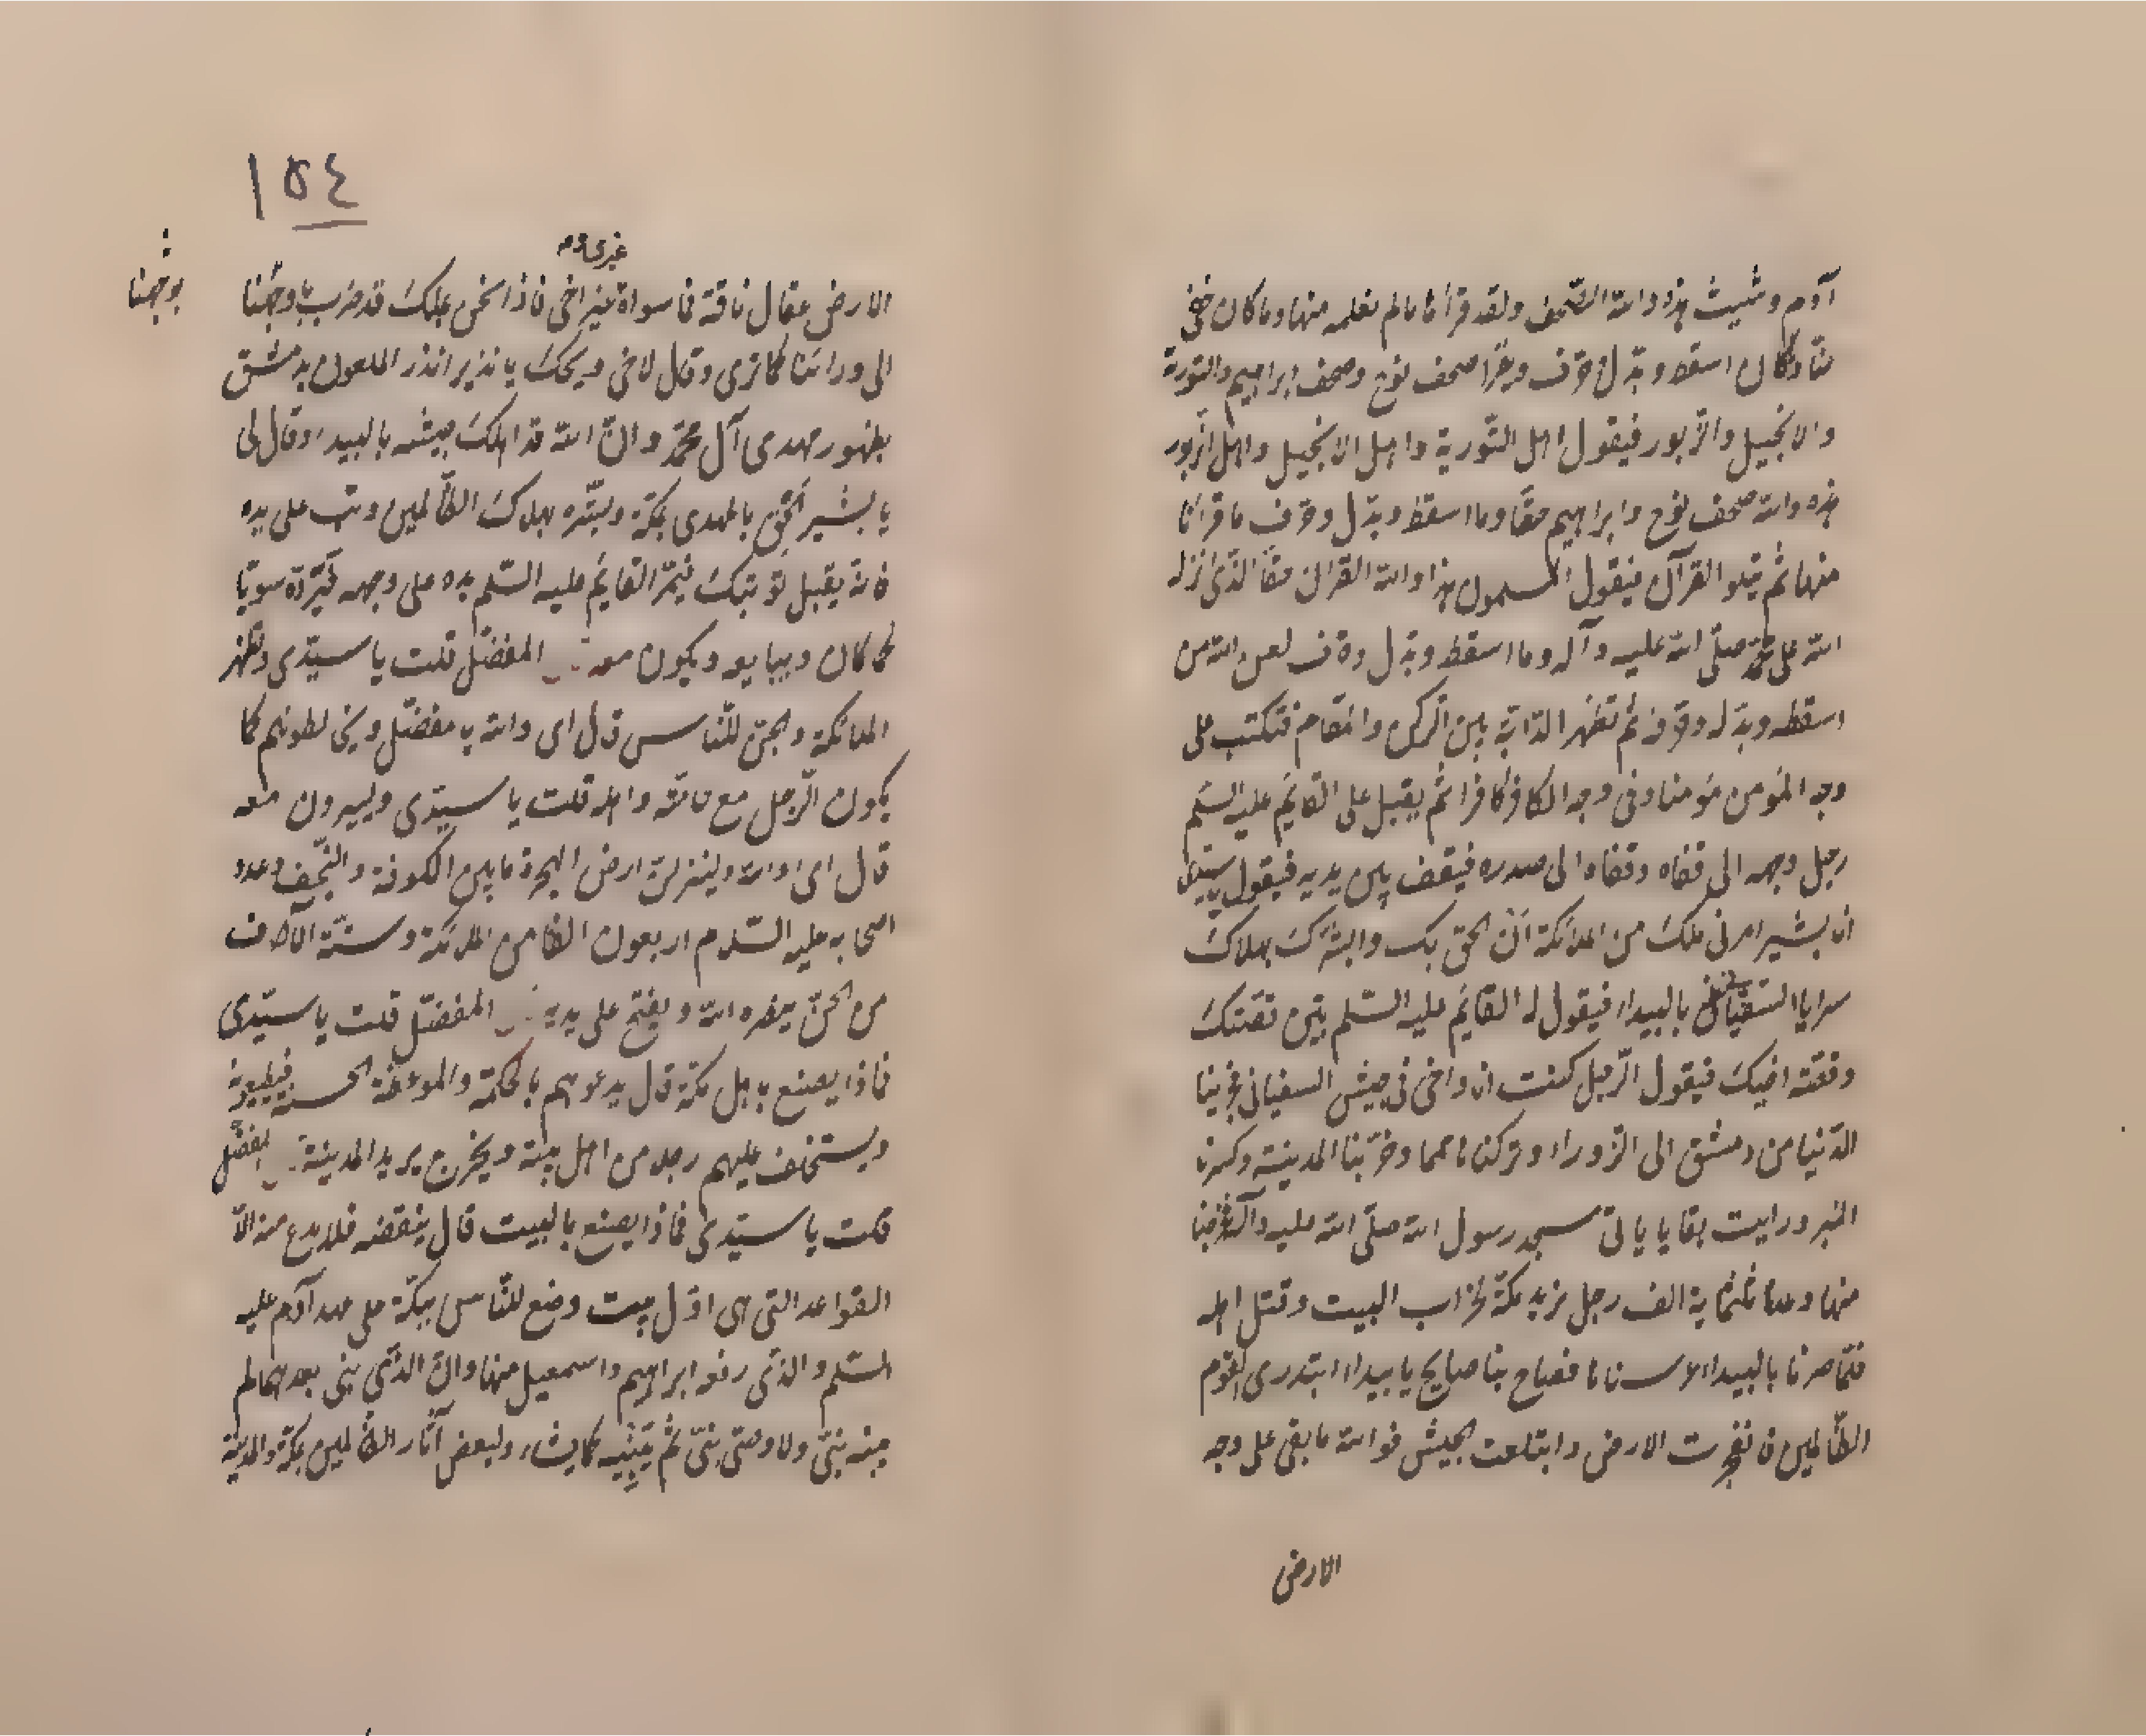 آدم وشيث هذه والله الصّحف ولقد قرأنا ما لم نعلمه منها وما كان خفى
منّا وكان اسقط وبدّل وحرّف ويقرأ صحف نوح وصحف ابراهيم والتورية
والانجيل والزّبور فيقول اهل التّورية واهل الانجيل واهل الزّبور
هذه والله صحف نوح وابراهيم حقّا وما اسقط وبدّل وحرّف ما قرأنا
منها ثم يتلو القرآن فيقول المسلمون هذا والله القران حقّا الذى انزله
الله على محمّد صلّى الله عليه وآله وما اسقط وبدّل وحرف لعن الله من
اسقطه وبدّله وحرّفه ثم تظهر الدّابّة بين الرّكن والمقام فتكتب على
وجه المؤمن مؤمنا وفى وجه الكافر كافرا ثم يقبل على القايم عليه السّلم
رجل وجهه الى قفاه وقفاه الى صدره فيقف بين يديه فيقول يا سيّدى
انا بشير امرنى ملك من الملائكة أن الحق بك وابشّرك بهلاك
سرايا السّفيانى بالبيداء فيقول له القايم عليه السّلم بيّن قصّتك
وقصّة اخيك فيقول الرّجل كنت انا واخى فى جيش السفيانى فخربنا
الدّنيا من دمشق الى الزّوراء وتركناها حمما وخرّبنا المدينة وكسرنا
المنبر ورايت بقايا يالتى مسجد رسول الله صلّى الله عليه وآله وخرجنا
منها وعدنا ثلثماية الف رجل نريد مكّة لخراب البيت وقتل اهله
فلمّا صرنا بالبيداء عرسنا بها فصاح بنا صايح يا بيداء ابتدرى القوم
الظّالمين فانفجرت الارض وابتلعت الجيش فوالله ما بقى على وجه
الارض
١٥٤
غيرى و
الارض عقال ناقة فما سواه غير اخى فاذا نحن بملك قد ضرب بنا وجهنا
بوجهنا
الى ورائنا كما ترى وقال لاخى ويحك يا نذير انذر الملعون بدمشق
بظهور مهدى آل محمّد وانّ الله قد اهلك جيشه بالبيداء وقال لى
يا بشير الحق بالمهدى بمكة وبشّره بهلاك الظّالمين وتب على يده
فانه يقبل توبتك فيمرّ القايم عليه السّلم يده على وجهه فيردّه سويّا
كما كان ويبايعه ويكون معه المفضّل قلت يا سيّدى وتظهر
الملائكة والجن للنّاس قال اى والله يا مفضّل ويخالطونهم كما
يكون الرّجل مع حاشية واهله قلت يا سيّدى ويسيرون معه
قال اى والله ولينزلنّ ارض الهجرة ما بين الكوفة والنّجف وعدد
اصحابه عليه السّلام اربعون الفا من الملائكة وستّة آلاف
من الجنّ ينصره الله ويفتح على يديه المفضّل قلت يا سيّدى
فماذا يصنع باهل مكّة قال يدعوهم بالحكمة والموعظة الحسنة فيطيعونه
ويستخلف عليهم رجلا من اهل بيته ويخرج يريد المدينة المفضّل
قلت يا سيّدى فماذا يصنع بالبيت قال ينقضه فلا يدع منه الّا
القواعد التى هى اوّل بيت وضع للنّاس ببكّة على عهد آدم عليه
السّلم والذى رفعه ابراهيم واسمعيل منها وانّ الذّى بنى بعدهما لم
يبنه نبىّ ولا وصىّ نبىّ ثم يبنيه كما يشاء وليعفى آثار الظّالمين بمكّة والمدينة